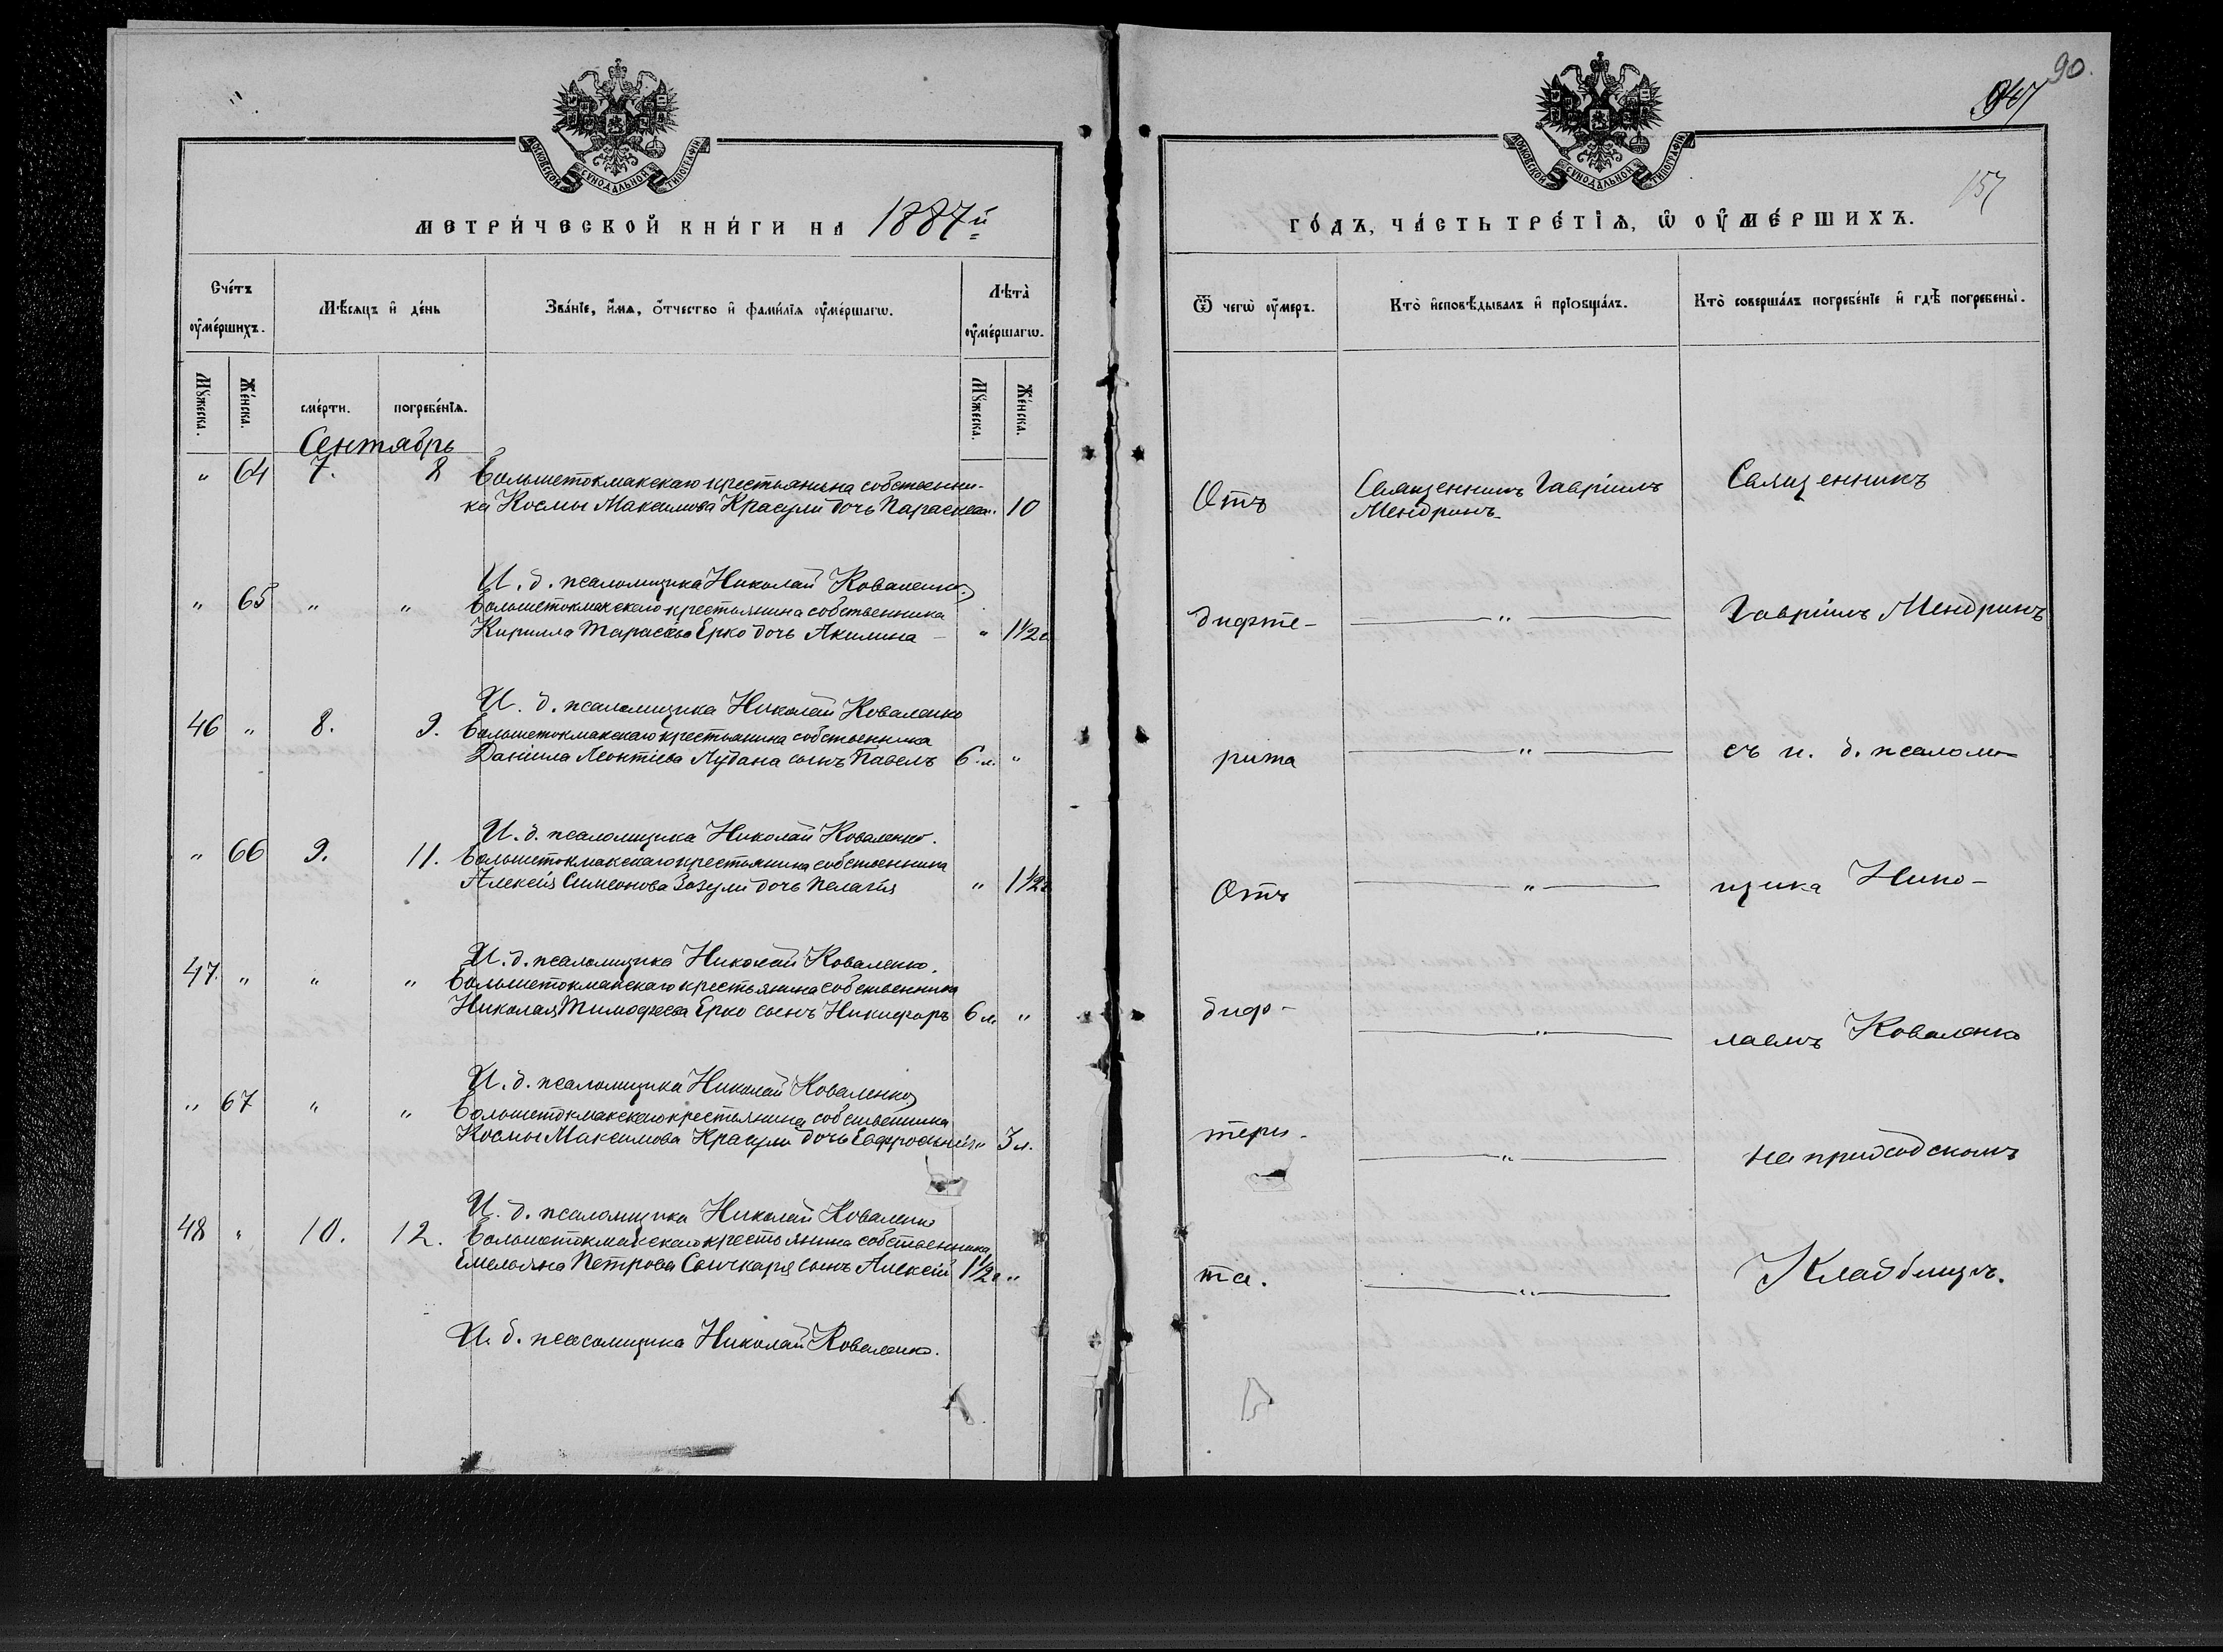 МОСКОВСКОЙ СѴНОДАЛЬНОЙ ТИПОГРАФІИ
МЕТРИ́ЧЕСКОЙ КНИ́ГИ НА 1887й
Сче́тъ оу҆ме́ршихъ.
Мѣ́сяцъ и҆ де́нь
Зва́нїе, и҆́мя, ѻ҆́тчество и҆ фами́лїя оу҆ме́ршагѡ.
Лѣта̀ оу҆ме́ршагѡ.
Мꙋ́жеска.
Же́нска.
сме́рти.
погребе́нїя.
Мꙋ́жеска.
Же́нска.
Сентябрь
" 64 7. 8 Большетокмакскаго крестьянина собственни-
ка Космы Максимова Красули дочь Параскева " 10
И. д. псаломщика Николай Коваленко
" 65 " " Большетокмакскаго крестьянина собственника
Кирилла Тарасова Ерко дочь Акилина – " 1 1/2
И. д. псаломщика Николай Коваленко
46 " 8. 9. Большетокмакскаго крестьянина собственника
Даніила Леонтіева Лубана сынъ Павелъ 6 м. "
И. д. псаломщика Николай Коваленко.
" 66 9. 11. Большетокмакскаго крестьянина собственника
Алексія Симеонова Зозули дочь Пелагія " 1 1/2
И. д. псаломщика Николай Коваленко.
47. " " " Большетокмакскаго крестьянина собственника
Николая Тимофеева Ерко сынъ Никифоръ 6 м. "
И. д. псаломщика Николай Коваленко
" 67 " " Большетокмакскаго крестьянина собственника
Космы Максимова Красули дочь Евфросинія " 3 л.
И. д. псаломщика Николай Коваленко
48 " 10. 12. Большетокмакскаго крестьянина собственника
Емельяна Петрова Сычкаря сынъ Алексій 1 1/2 "
И. д. псаломщика Николай Коваленко.
90.
157
МОСКОВСКОЙ СѴНОДАЛЬНОЙ ТИПОГРАФІИ
ГО́ДЪ, ЧА́СТЬ ТРЕ́ТЇЯ, Ѡ҆ ОУ҆МЕ́РШИХЪ.
Ѿ чегѡ̀ оу҆́меръ.
Кто̀ и҆сповѣ́дывалъ и҆ прїѻбща́лъ.
Кто̀ соверша́лъ погребе́нїе и҆ гдѣ̀ погребены̀.
Отъ
дифте-
рита
Отъ
диф-
тери-
та.
Священникъ Гавріилъ
Мендринъ
"
"
"
"
"
"
Священникъ
Гавріилъ Мендринъ
съ и. д. псалом-
щика Нико-
лаемъ Коваленко
на приходскомъ
Кладбищѣ.